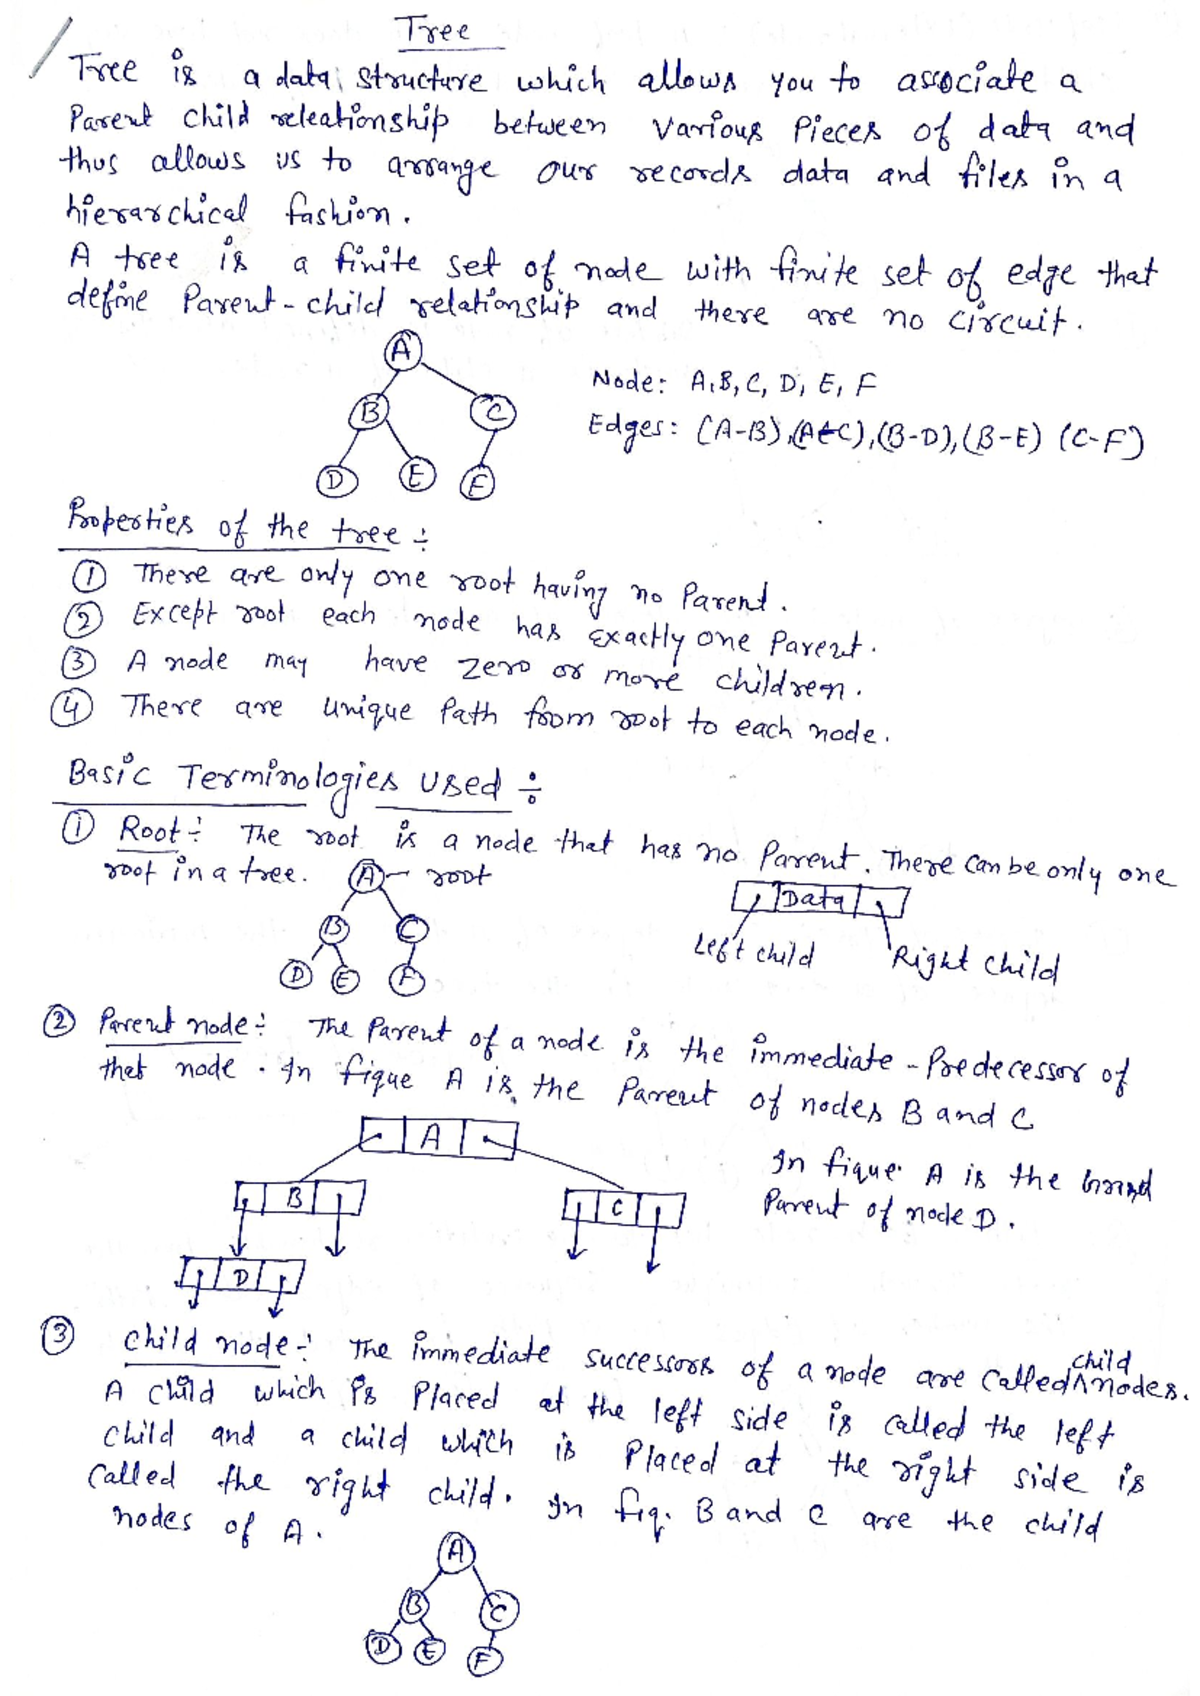 Tree
Tree is a data structure which allows you to associate a
Parent child releationship between various Pieces of data and
thus allows us to arrange our records data and files in a
hierarchical fashion.
A tree is a finite set of node with finite set of edge that
define Parent-child relationship and there are no circuit.
A
B C
D E F
Node: A, B, C, D, E, F
Edges: (A-B), (A-C), (B-D), (B-E) (C-F)
Properties of the tree ÷
① There are only one root having no Parent.
② Except root each node has exactly one Parent.
③ A node may have zero or more children.
④ There are unique Path from root to each node.
Basic Terminologies used ÷
① Root ÷ The root is a node that has no Parent. There can be only one
root in a tree.
A - root
B C
D E F
Data
Left child Right child
② Parent node ÷ The Parent of a node is the immediate - Predecessor of
that node. In fique A is the Parent of nodes B and C
A
B C
D
In fique A is the
Parent of node D.
③ Child node ÷ The immediate successors of a node are called child nodes.
A child which is Placed at the left side is called the left
child and a child which is Placed at the right side is
called the right child. In fig. B and C are the child
nodes of A.
A
B C
D E F